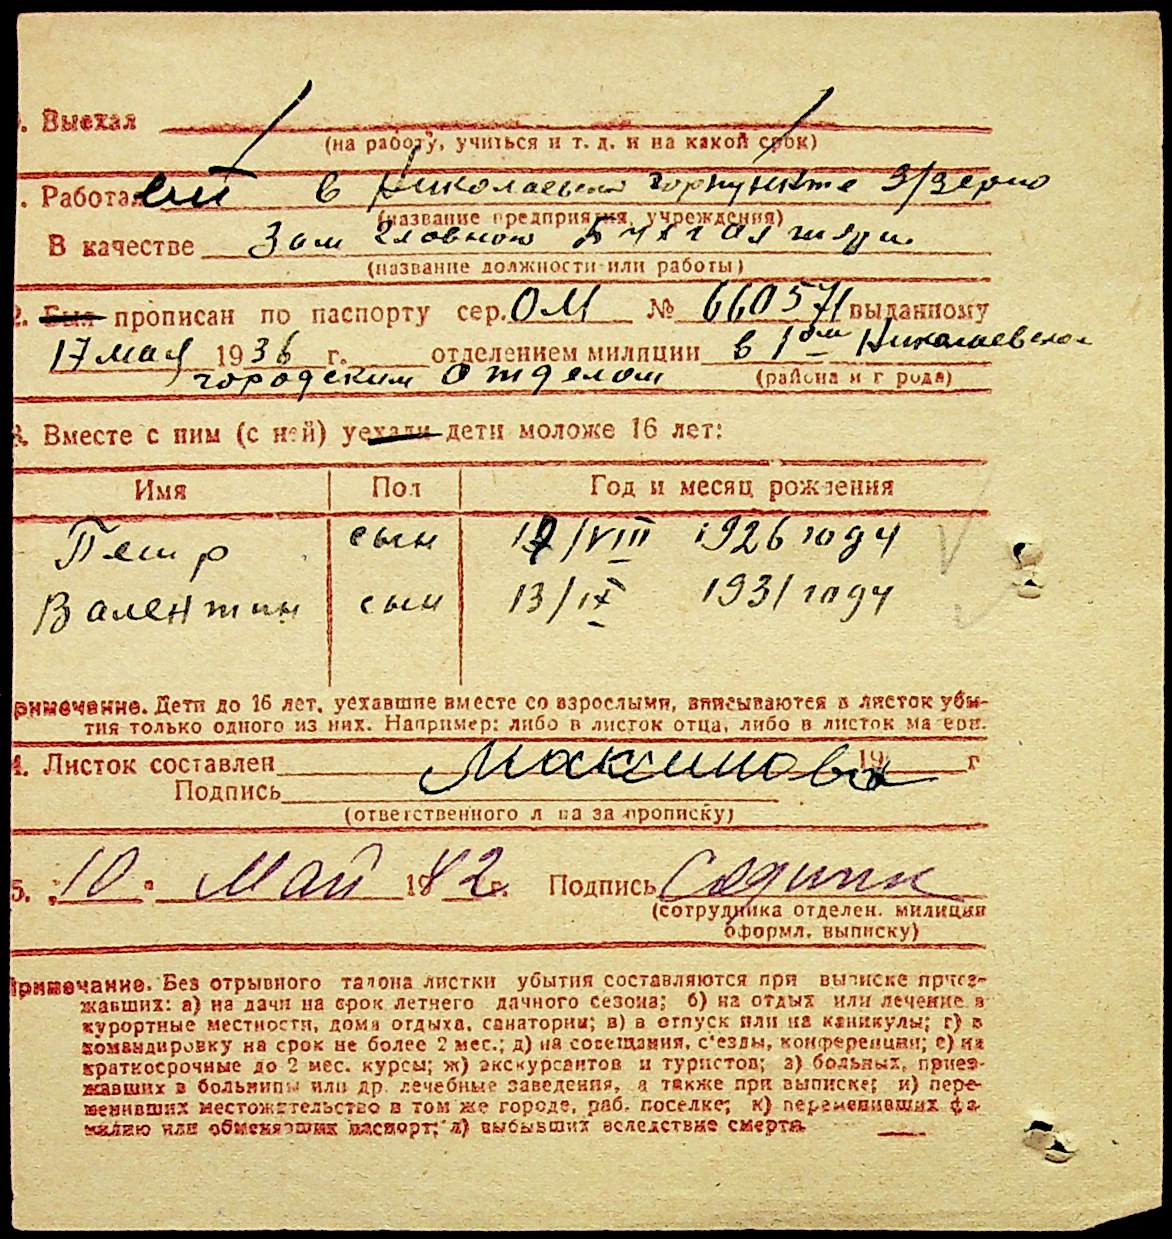 . Выехал
(на работу, учиться и т. д. и на какой срок)
. Работает в Николаевском горпункте З/Зерно
(название предприятия, учреждения)
В качестве Зам Главного Бухгалтера.
(название должности или работы)
2. Был прописан по паспорту сер. ОМ № 660571 выданному
17 мая 1936 г. отделением милиции в 1ом Николаевском
городским отделом (района и г рода)
3. Вместе с ним (с ней) уехали дети моложе 16 лет:
Имя Пол Год и месяц рождения
Петр сын 17/VIII 1926 году
Валентин сын 13/IX 1931 году
римечание. Дети до 16 лет, уехавшие вместе со взрослыми, вписываются в листок убы-
тия только одного из них. Например: либо в листок отца, либо в листок ма ери.
4. Листок составлен Максимова 19 г
Подпись
(ответственного л ца за прописку)
5. „10 " Май 1942 г. Подпись
(сотрудника отделен. милиции
оформл. выписку)
Примечание. Без отрывного талона листки убытия составляются при выписке приез-
жавших: а) на дачи на срок летнего дачного сезона; б) на отдых или лечение в
курортные местности, дома отдыха, санатории; в) в отпуск или на каникулы; г) в
командировку на срок не более 2 мес.; д) на совещания, с'езды, конференции; е) на
краткосрочные до 2 мес. курсы; ж) экскурсантов и туристов; з) больных, приез-
жавших в больницы или др. лечебные заведения, а также при выписке; и) пере-
менивших местожительство в том же городе, раб. поселке; к) переменивших фа-
милию или обменявших паспорт; л) выбывших вследствие смерти.